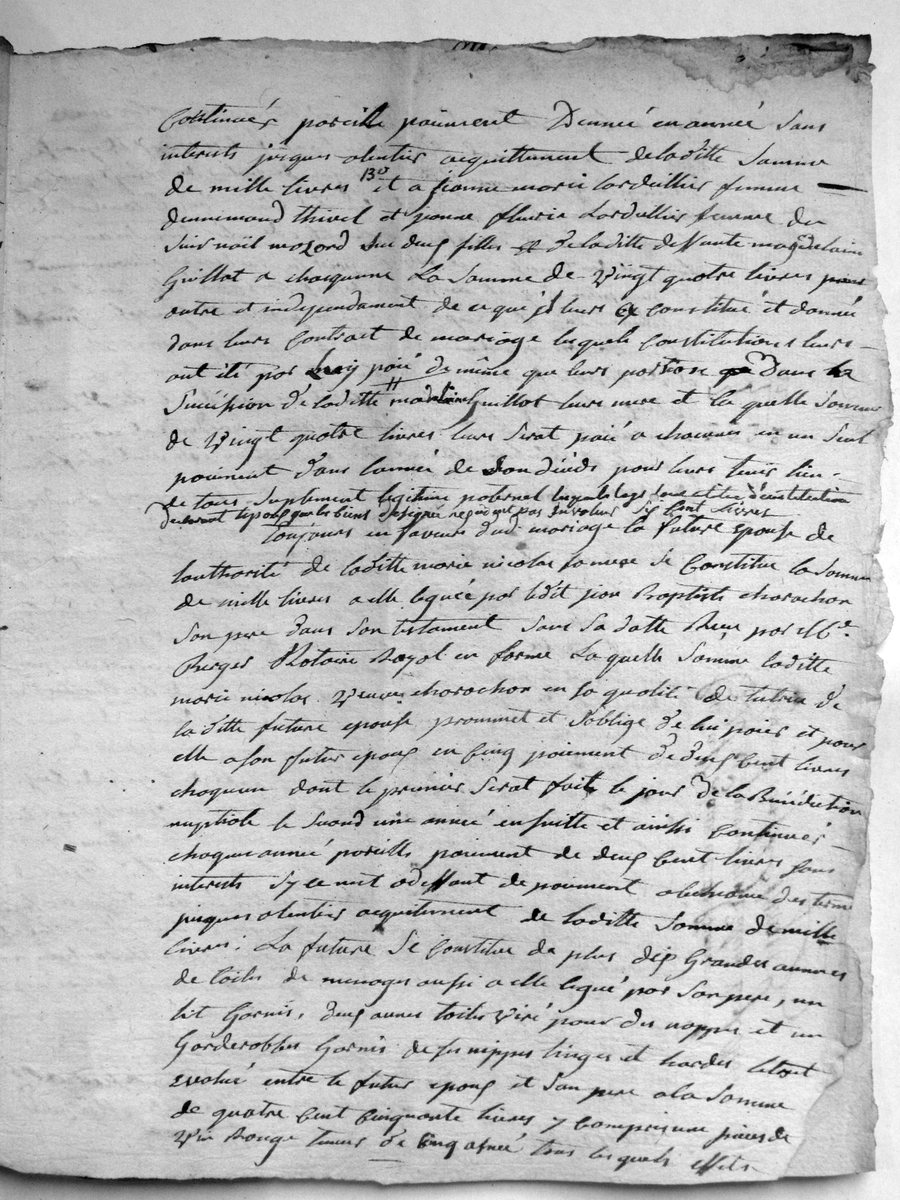 Continuer pareille paiiment d'année en année sans
interets jusques alentier acquittement de laditte somme
de mille livres 13o et a jeanne marie Larduillier femme
dennemond thivel et jeanne fleurie Larduillier femme du
Sieur noël mozard Ses deux filles et de laditte deffunte magdelaine
Guillot a chacquune La Somme de Vingt quatre livres
outre et independament de ce qu'il leurs a constitué et donnée
dans leurs Contract de mariage lesquels constitutions leurs
ont été par luy paié de même que leurs portions dans la
Succession de laditte Guillot leurs mere et la quelle Somme
de Vingt quatre livres leurs Serat paié a chacunes en un Seul
paiiment dans l'année de Son décéds pour leurs tenir lieu
de tous Suplement legitime paternel
declarant lepoux que les biens designée n'exedent pas en valeur Six Cent Livres
Toujours en faveurs dud mariage la future Epouse de
lauthorité de laditte marie nicolas Sa mere Se Constitue la Somme
de mille livres a elle leguée par ledit jean Baptiste charachon
Son pere dans Son testament Sous Sa datte Recu par Me.
Berger Notaire Royal en forme La quelle Somme laditte
marie nicolas Veuve charachon en Sa qualité de tutrice de
laditte future epouse prommet et S'oblige de lui paier et pour
elle a Son futur epoux en Cinq paiement de deux Cent livres
chaquun dont le premier Serat fait le jour de la Bénédiction
nuptiale le Second une année ensuitte et ainsi continuer
chaque année pareille paiement de deux Cent livres Sans
interets Sy ce n'est a deffaut de paiiment a l'echeance des terme
jusques alentier acquitement de laditte Somme de mille
livres: La future Se Constitue de plus dix Grandes aunnes
de toiles de menages aussi a elle legué par Son pere, un
lit Garnis, deux aunes toiles pour des nappes et un
Garderobbes Garnis de Ses nippes linges et hardes letout
evalué entre le futur epoux et San pere a la Somme
de quatre Cent Cinquante livres y Compris une pieces de
Vin Rouge teneur de Cinq asnée tous lesquels effets